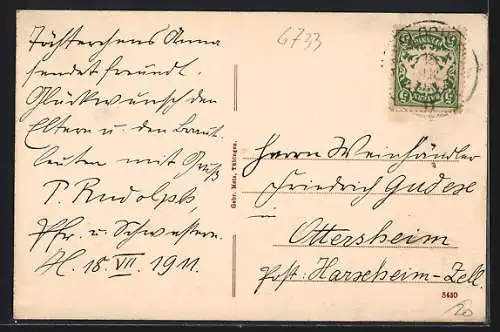 6733
Töchterchens Anna
sendet freundl.
Glückwunsch den
Eltern u. den Braut-
leuten mit Gruß
P. Rudolph,
Pfr. u. Schwestern.
H. 18. VII. 1911.
Gebr. Metz, Tübingen.
BAYERN
5
5
5
5
Herrn Weinhändler
Friedrich Gudese
in
Ottersheim
Post: Harxheim-Zell.
5480